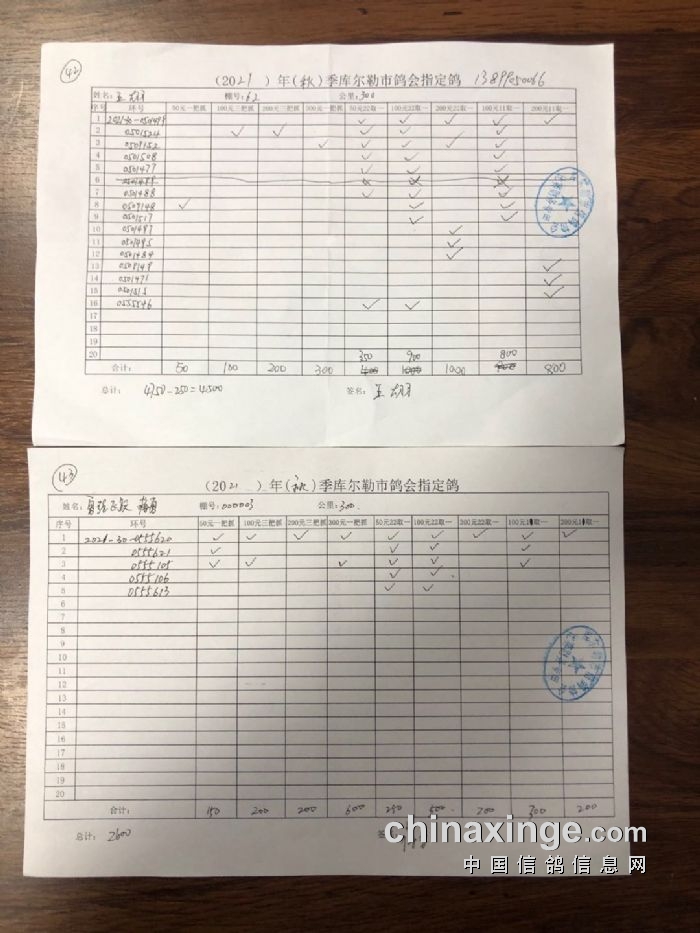 42
(2021 )年(秋)季库尔勒市鸽会指定鸽 13899250066
姓名: 王 棚号: 62 公里: 300
序号 环号 50元一把抓 100元三把抓 200元三把抓 300元一把抓 50元22取一 100元22取一 200元22取一 100元11取一 200元11取一
1 2021-30-0501499 ✓ ✓ ✓ ✓ ✓
2 0501524 ✓ ✓ ✓ ✓
3 0509152 ✓ ✓ ✓ ✓ ✓
4 0501508 ✓ ✓ ✓
5 0501477 ✓ ✓ ✓
6
7 0501488 ✓ ✓ ✓
8 0509148 ✓ ✓ ✓
9 0501517 ✓ ✓
10 0501497 ✓
11 0501495 ✓
12 0501484 ✓
13 0509149 ✓
14 0501471 ✓
15 0501515 ✓
16 0555546 ✓ ✓
17
18
19
20 350 900 800
合计: 50 100 200 300 400 1000 1000 900 800
总计: 4750-250=4500 签名: 王
43
(2021 )年(秋)季库尔勒市鸽会指定鸽
姓名: 棚号: 000003 公里: 300
序号 环号 50元一把抓 100元三把抓 200元三把抓 300元一把抓 50元22取一 100元22取一 200元22取一 100元11取一 200元11取一
1 2021-30-0555620 ✓ ✓ ✓ ✓ ✓ ✓ ✓ ✓ ✓
2 0555621 ✓ ✓ ✓ ✓
3 0555105 ✓ ✓ ✓ ✓ ✓ ✓
4 0555106 ✓ ✓
5 0555613 ✓ ✓
6
7
8
9
10
11
12
13
14
15
16
17
18
19
20
合计: 150 200 200 600 250 500 200 300 200
总计: 2600
chinaxinge.com
中国信鸽信息网